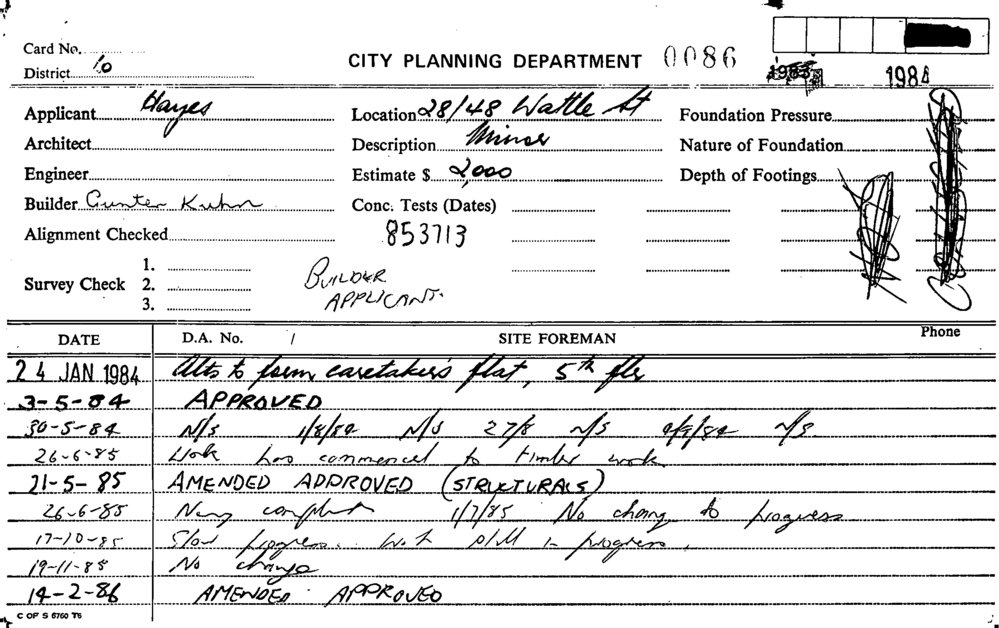 Card No.
District 10
CITY PLANNING DEPARTMENT 0086
1983 1984
Applicant Hayes
Location 28/48 Wattle St
Foundation Pressure
Architect
Description Minor
Nature of Foundation
Engineer
Estimate $ 2,000
Depth of Footings
Builder Gunter Kuhn
Conc. Tests (Dates)
Alignment Checked
853713
Survey Check 1.
2.
3.
BUILDER
APPLICANT.
DATE D.A. No. / SITE FOREMAN Phone
24 JAN 1984 Alts to form caretaker's flat, 5th flr
3-5-84 APPROVED
30-5-84 N/S 1/8/84 N/S 27/8 N/S 9/84 N/S
26-6-85 Work has commenced to timber work
21-5-85 AMENDED APPROVED (STRUCTURALS)
26-6-85 complete 1/7/85 No change to progress
17-10-85 Slow progress. Work still in progress.
19-11-85 No change
14-2-86 AMENDED APPROVED
C OF S 6760 T5